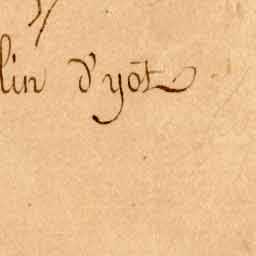 lin d'yot